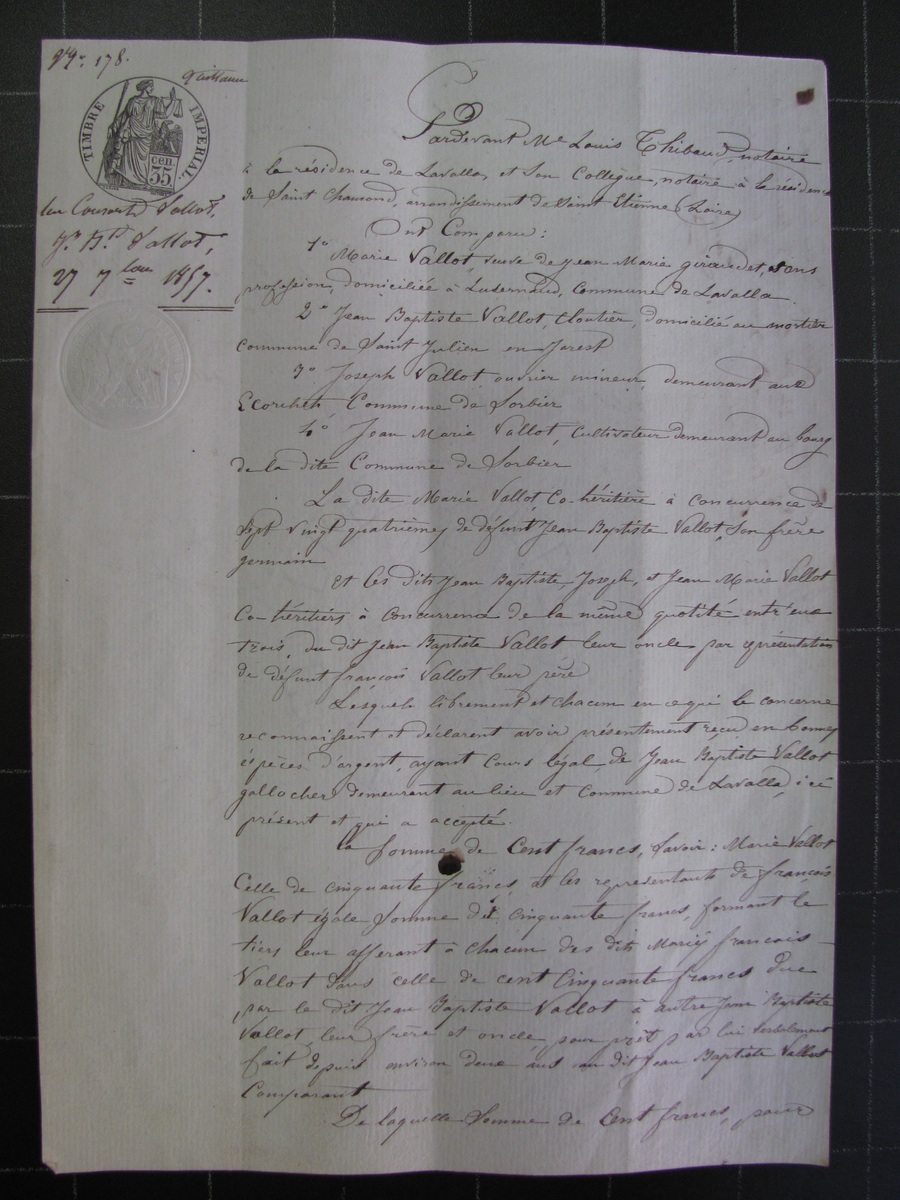 178.
quittance
TIMBRE IMPERIAL
cen. 35.
les Consorts Vallot,
Jn Bte Vallot,
27 7bre 1857.
Pardevant Me Louis Thibaud, notaire
à la résidence de Lavalla, et son Collègue, notaire à la résidence
de Saint Chamond, arrondissement de Saint Etienne (Loire)
Ont Comparu :
1o Marie Vallot, veuve de Jean Marie giraudet, sans
profession, domiciliée à Luzernaud, Commune de Lavalla.
2o Jean Baptiste Vallot, Cloutier, domicilié au mortier
commune de Saint Julien en Jarest
3o Joseph Vallot, ouvrier mineur, demeurant aux
Ecorchets, Commune de Sorbier
4o Jean Marie Vallot, Cultivateur demeurant au bourg
de la dite Commune de Sorbier
La dite Marie Vallot, Co-héritière à concurrence de
Sept vingt quatrièmes de défunt Jean Baptiste Vallot, Son frère
germain
Et les dits Jean Baptiste, Joseph, et Jean Marie Vallot
Co-héritiers à concurrence de la même quotité entr'eux
trois, du dit Jean Baptiste Vallot leur oncle par représentation
de défunt françois Vallot leur père
Lesquels librement et chacun en ce qui le concerne
reconnaissent et déclarent avoir présentement reçu en bonnes
éspèces d'argent, ayant Cours légal, de Jean Baptiste Vallot
gallocher demeurant au lieu et Commune de Lavalla, ici
présent et qui a accepté.
la Somme de Cent francs, Savoir : Marie Vallot
Celle de cinquante francs, et les représentants de françois
Vallot égale Somme de Cinquante francs, formant le
tiers leur afferant à chacun des dits Marie françois
Vallot dans celle de cent Cinquante francs due
par le dit Jean Baptiste Vallot à autre Jean Baptiste
Vallot, leur frère et oncle pour prêt par lui verbalement
fait depuis environ deux ans au dit Jean Baptiste Vallot
Comparant
De laquelle Somme de Cent francs, pour